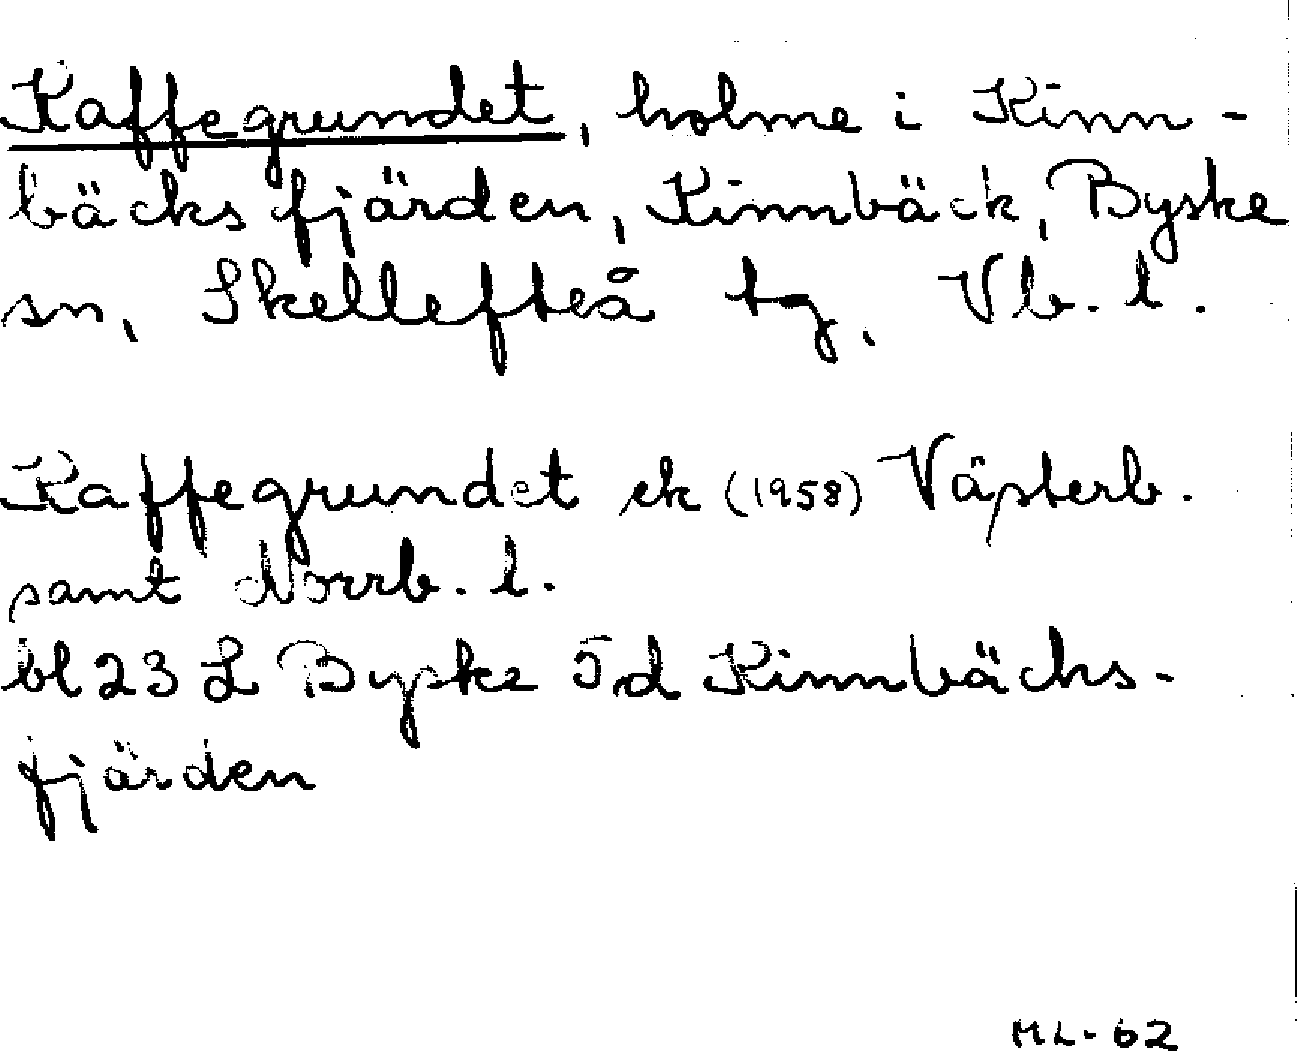 Kaffegrundet, holme i Kinn-
bäcksfjärden, Kinnbäck, Byske
sn, Skellefteå tg, Vb. l.
Kaffegrundet ek (1958) Västerb.
samt Norrb. l.
bl 23 L Byske 5d Kinnbäcks-
fjärden
ML-62